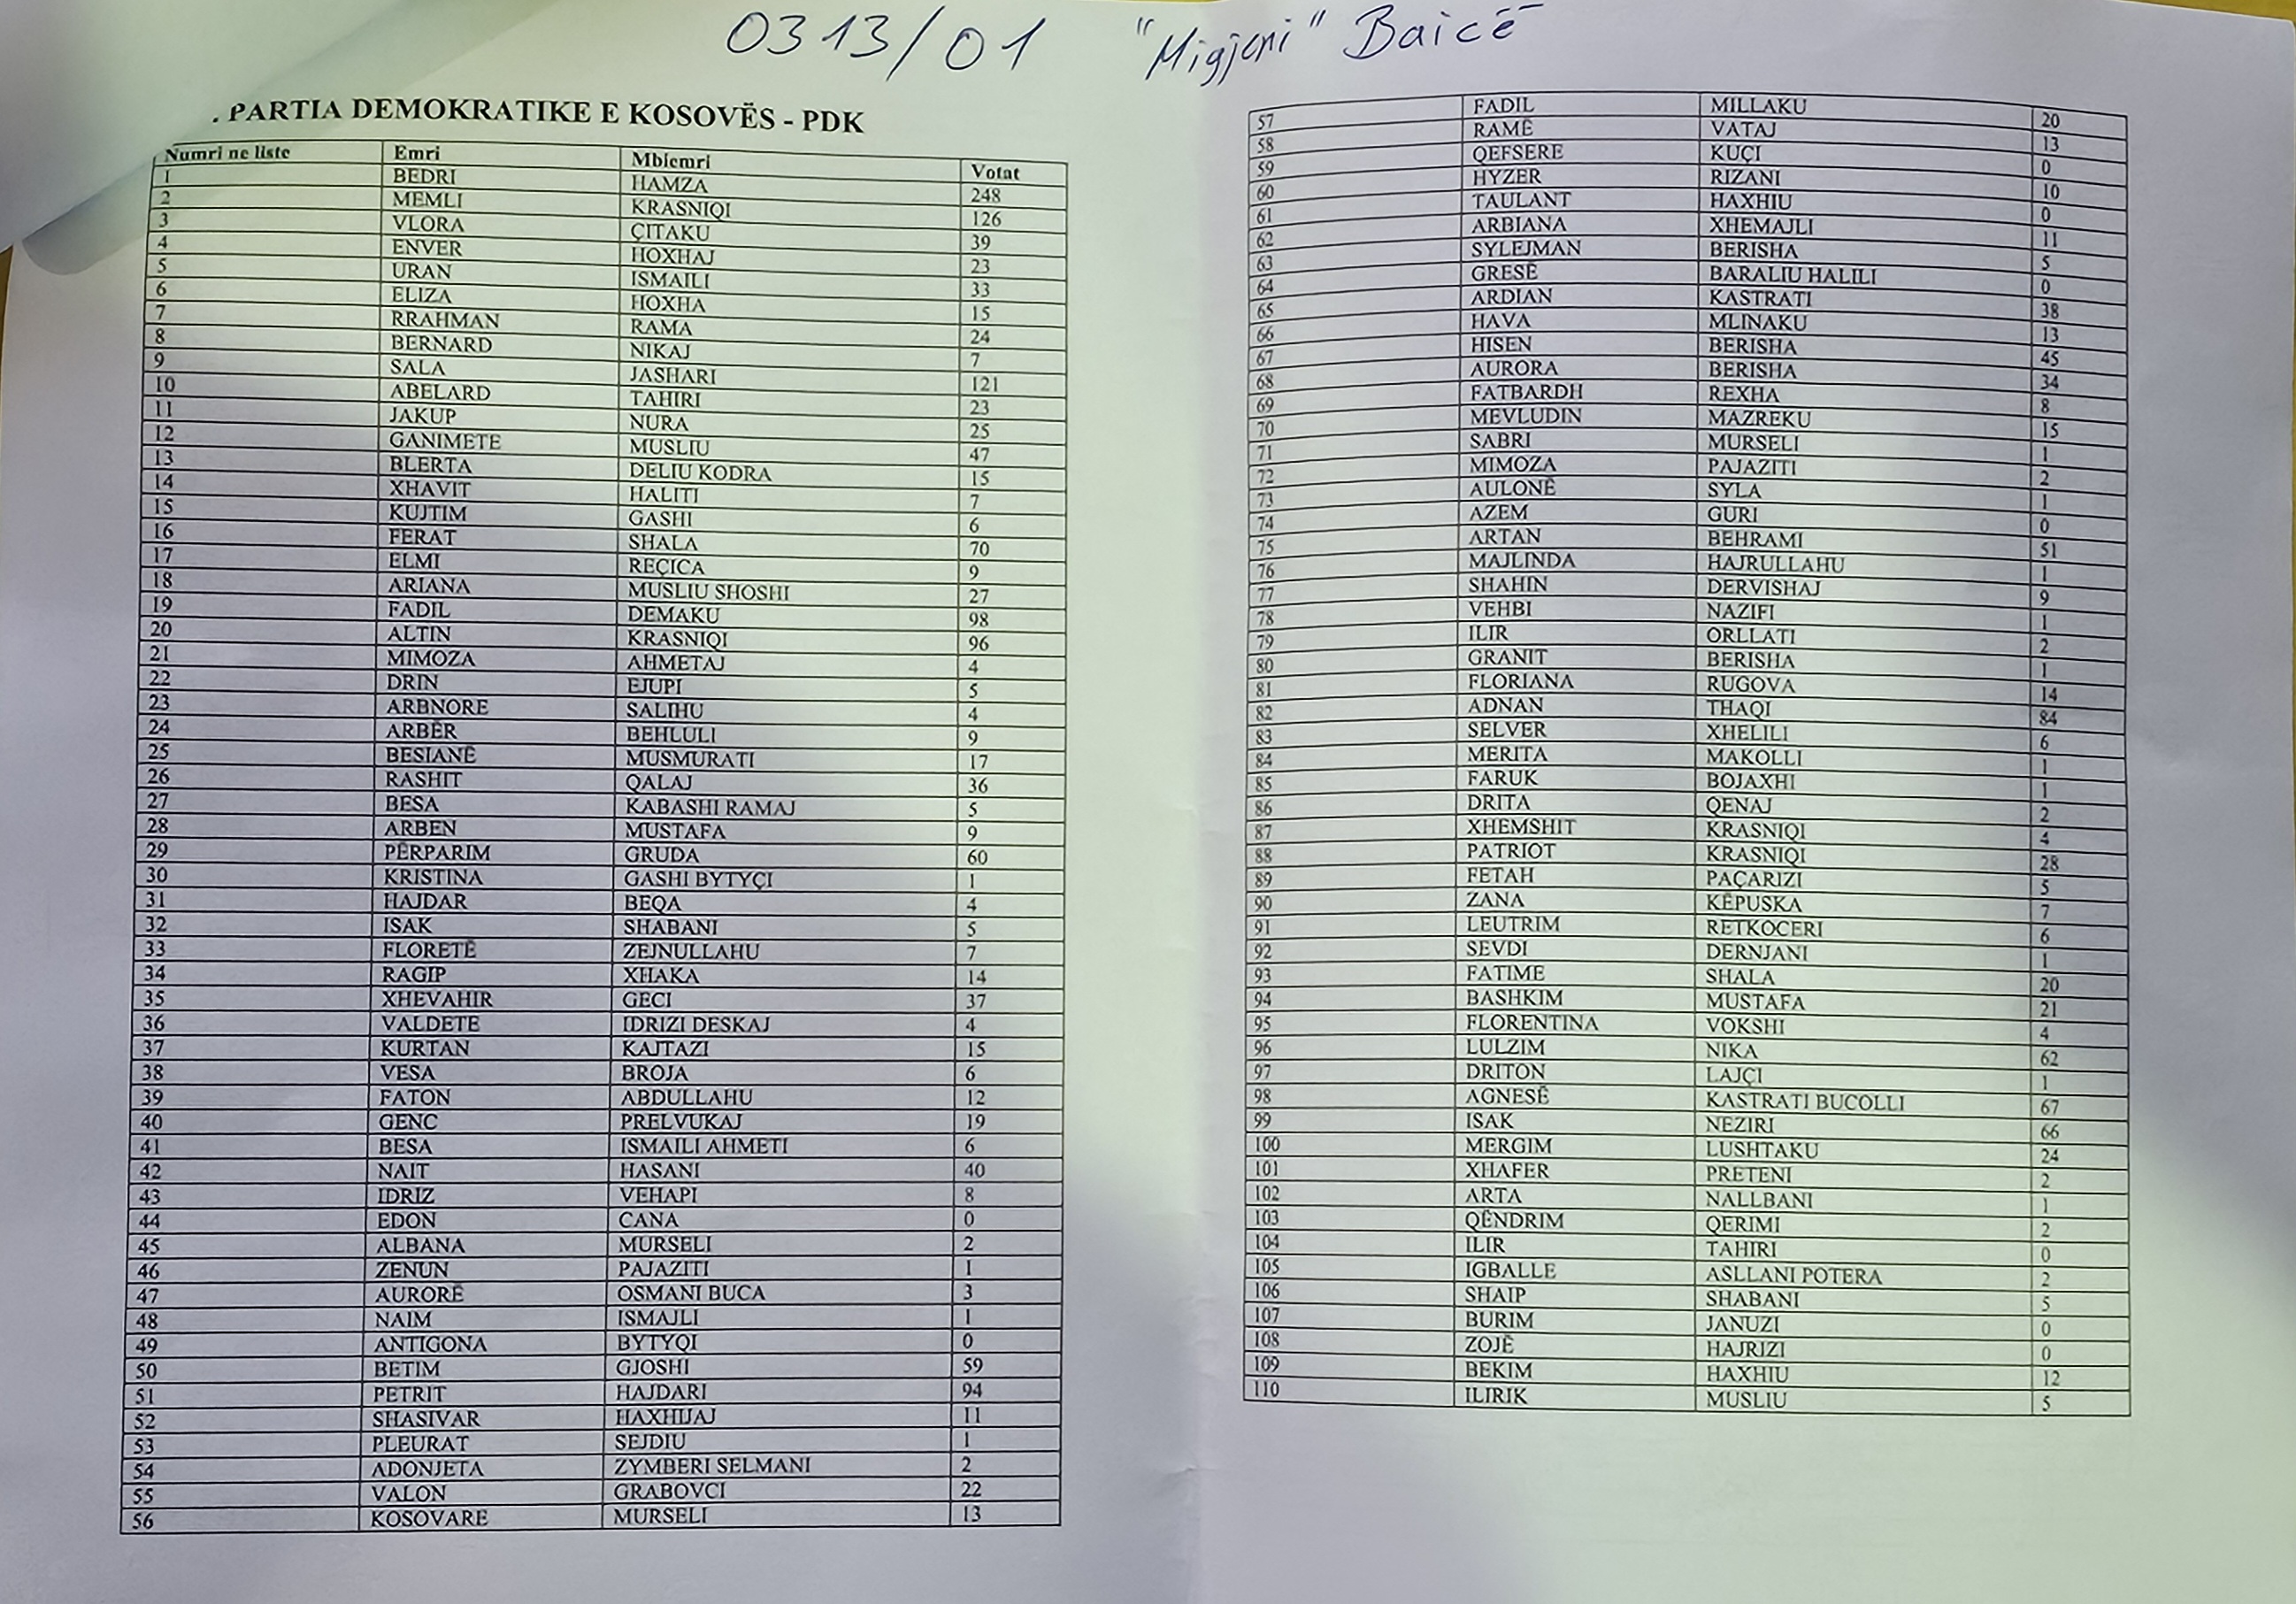 0313/01 "Migjeni" Baicë
. PARTIA DEMOKRATIKE E KOSOVËS - PDK
Numri ne liste Emri Mbiemri Votat
1 BEDRI HAMZA 248
2 MEMLI KRASNIQI 126
3 VLORA ÇITAKU 39
4 ENVER HOXHAJ 23
5 URAN ISMAILI 33
6 ELIZA HOXHA 15
7 RRAHMAN RAMA 24
8 BERNARD NIKAJ 7
9 SALA JASHARI 121
10 ABELARD TAHIRI 23
11 JAKUP NURA 25
12 GANIMETE MUSLIU 47
13 BLERTA DELIU KODRA 15
14 XHAVIT HALITI 7
15 KUJTIM GASHI 6
16 FERAT SHALA 70
17 ELMI REÇICA 9
18 ARIANA MUSLIU SHOSHI 27
19 FADIL DEMAKU 98
20 ALTIN KRASNIQI 96
21 MIMOZA AHMETAJ 4
22 DRIN EJUPI 5
23 ARBNORE SALIHU 4
24 ARBËR BEHLULI 9
25 BESIANË MUSMURATI 17
26 RASHIT QALAJ 36
27 BESA KABASHI RAMAJ 5
28 ARBEN MUSTAFA 9
29 PËRPARIM GRUDA 60
30 KRISTINA GASHI BYTYÇI 1
31 HAJDAR BEQA 4
32 ISAK SHABANI 5
33 FLORETË ZEJNULLAHU 7
34 RAGIP XHAKA 14
35 XHEVAHIR GECI 37
36 VALDETE IDRIZI DESKAJ 4
37 KURTAN KAJTAZI 15
38 VESA BROJA 6
39 FATON ABDULLAHU 12
40 GENC PRELVUKAJ 19
41 BESA ISMAILI AHMETI 6
42 NAIT HASANI 40
43 IDRIZ VEHAPI 8
44 EDON CANA 0
45 ALBANA MURSELI 2
46 ZENUN PAJAZITI 1
47 AURORË OSMANI BUCA 3
48 NAIM ISMAJLI 1
49 ANTIGONA BYTYQI 0
50 BETIM GJOSHI 59
51 PETRIT HAJDARI 94
52 SHASIVAR HAXHIJAJ 11
53 PLEURAT SEJDIU 1
54 ADONJETA ZYMBERI SELMANI 2
55 VALON GRABOVCI 22
56 KOSOVARE MURSELI 13
57 FADIL MILLAKU 20
58 RAMË VATAJ 13
59 QEFSERE KUÇI 0
60 HYZER RIZANI 10
61 TAULANT HAXHIU 0
62 ARBIANA XHEMAJLI 11
63 SYLEJMAN BERISHA 5
64 GRESË BARALIU HALILI 0
65 ARDIAN KASTRATI 38
66 HAVA MLINAKU 13
67 HISEN BERISHA 45
68 AURORA BERISHA 34
69 FATBARDH REXHA 8
70 MEVLUDIN MAZREKU 15
71 SABRI MURSELI 1
72 MIMOZA PAJAZITI 2
73 AULONË SYLA 1
74 AZEM GURI 0
75 ARTAN BEHRAMI 51
76 MAJLINDA HAJRULLAHU 1
77 SHAHIN DERVISHAJ 9
78 VEHBI NAZIFI 1
79 ILIR ORLLATI 2
80 GRANIT BERISHA 1
81 FLORIANA RUGOVA 14
82 ADNAN THAQI 84
83 SELVER XHELILI 6
84 MERITA MAKOLLI 1
85 FARUK BOJAXHI 1
86 DRITA QENAJ 2
87 XHEMSHIT KRASNIQI 4
88 PATRIOT KRASNIQI 28
89 FETAH PAÇARIZI 5
90 ZANA KËPUSKA 7
91 LEUTRIM RETKOCERI 6
92 SEVDI DERNJANI 1
93 FATIME SHALA 20
94 BASHKIM MUSTAFA 21
95 FLORENTINA VOKSHI 4
96 LULZIM NIKA 62
97 DRITON LAJÇI 1
98 AGNESË KASTRATI BUCOLLI 67
99 ISAK NEZIRI 66
100 MERGIM LUSHTAKU 24
101 XHAFER PRETENI 2
102 ARTA NALLBANI 1
103 QËNDRIM QERIMI 2
104 ILIR TAHIRI 0
105 IGBALLE ASLLANI POTERA 2
106 SHAIP SHABANI 5
107 BURIM JANUZI 0
108 ZOJË HAJRIZI 0
109 BEKIM HAXHIU 12
110 ILIRIK MUSLIU 5